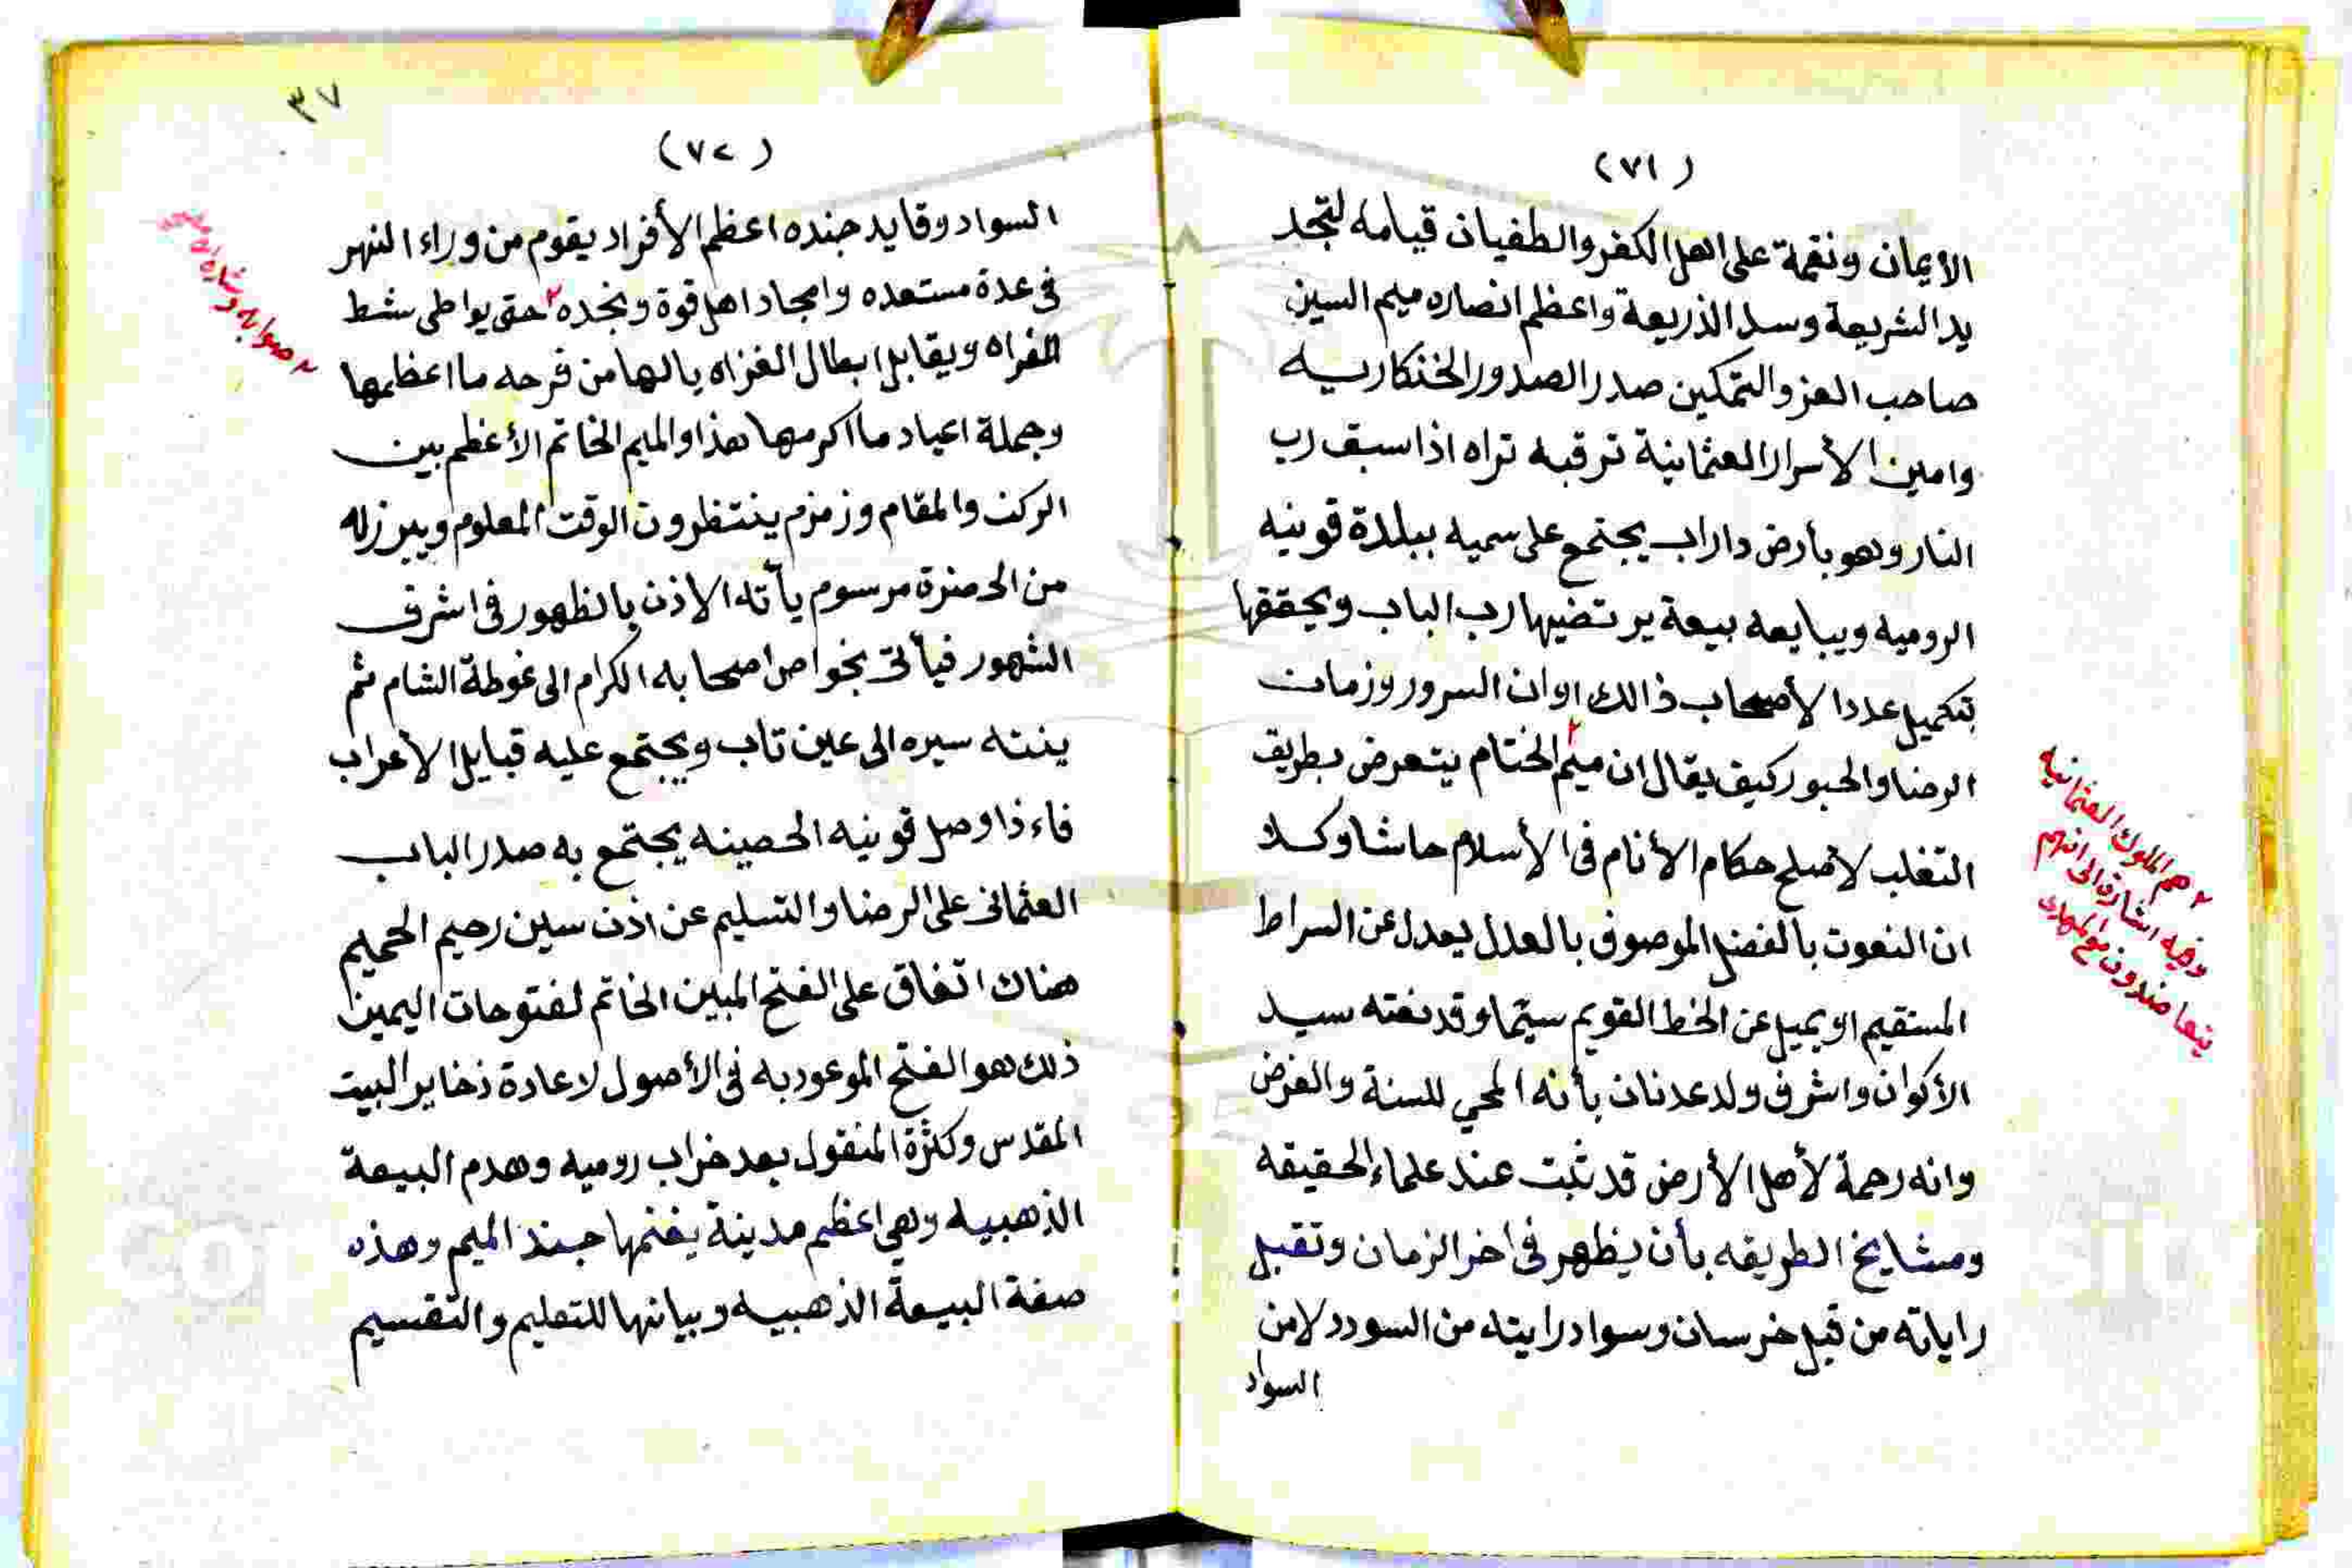 (٧١)
الأيمان ونقمة على اهل الكفر والطغيان قيامه لتجد
يد الشريعة وسد الذريعة واعظم انصاره ميم السين
صاحب العز والتمكين صدر الصدور الخنكاريه
وامين الأسرار العثمانية ترقبه تراه اذا سبق رب
النار وهو بأرض داراب يجتمع على سميه ببلدة قونيه
الروميه ويبايعه بيعة يرتضيها رب الباب ويحققها
بتكميل عدد الأصحاب ذالك اوان السرور وزمان
الرضا والحبور كيف يقال ان ميم٢ الختام يتعرض بطريق
التغلب لأصلح حكام الأنام في الأسلام حاشا وكلا
ان النعوت بالفضل الموصوف بالعدل يعدل عن السراط
المستقيم او يميل عن الخط القويم سيّما وقد نعته سيد
الأكوان واشرف ولد عدنان بأنه المحي للسنة والفرض
وانه رحمة لأهل الأرض قد ثبت عند علماء الحقيقه
ومشايخ الطريقه بأن يظهر في اخر الزمان وتقبل
راياته من قبل خرسان وسواد رايته من السودد لا من
السواد
٢ هم الملوك العثمانيه
وفيه اشارة الى انهم
يتعاضدون مع المهدي
٣٧
(٧٢)
السواد وقايد جنده اعظم الأفراد يقوم من وراء النهر
في عدة مستعده وامجاد اهل قوة ونجده٢ حتى يواطي شط
الفراه ويقابل ابطال الغزاه يالها من فرحه ما اعظمها
وجملة اعياد ما اكرمها هذا والميم الخاتم الأعظم بين
الركن والمقام وزمزم ينتظرون الوقت المعلوم ويبرز له
من الحضرة مرسوم يأته الاذن بالظهور في اشرف
الشهور فيأتى بخواص اصحابه الكرام الى غوطة الشام ثم
ينته سيره الى عين تاب ويجتمع عليه قبايل الأعراب
فاءذا وصل قونيه الحصينه يجتمع به صدر الباب
العثمانى على الرضا والتسليم عن اذن سين رحيم الحميم
هناك اتفاق على الفتح المبين الخاتم لفتوحات اليمين
ذلك هو الفتح الموعود به في الأصول لاعادة ذخاير البيت
المقدس وكثرة المنقول بعد خراب روميه وهدم البيعة
الذهبيه وهي اعظم مدينة يغنمها جند الميم وهذه
صفة البيعة الذهبيه وبيانها للتعليم والتقسيم
٢ صوابه